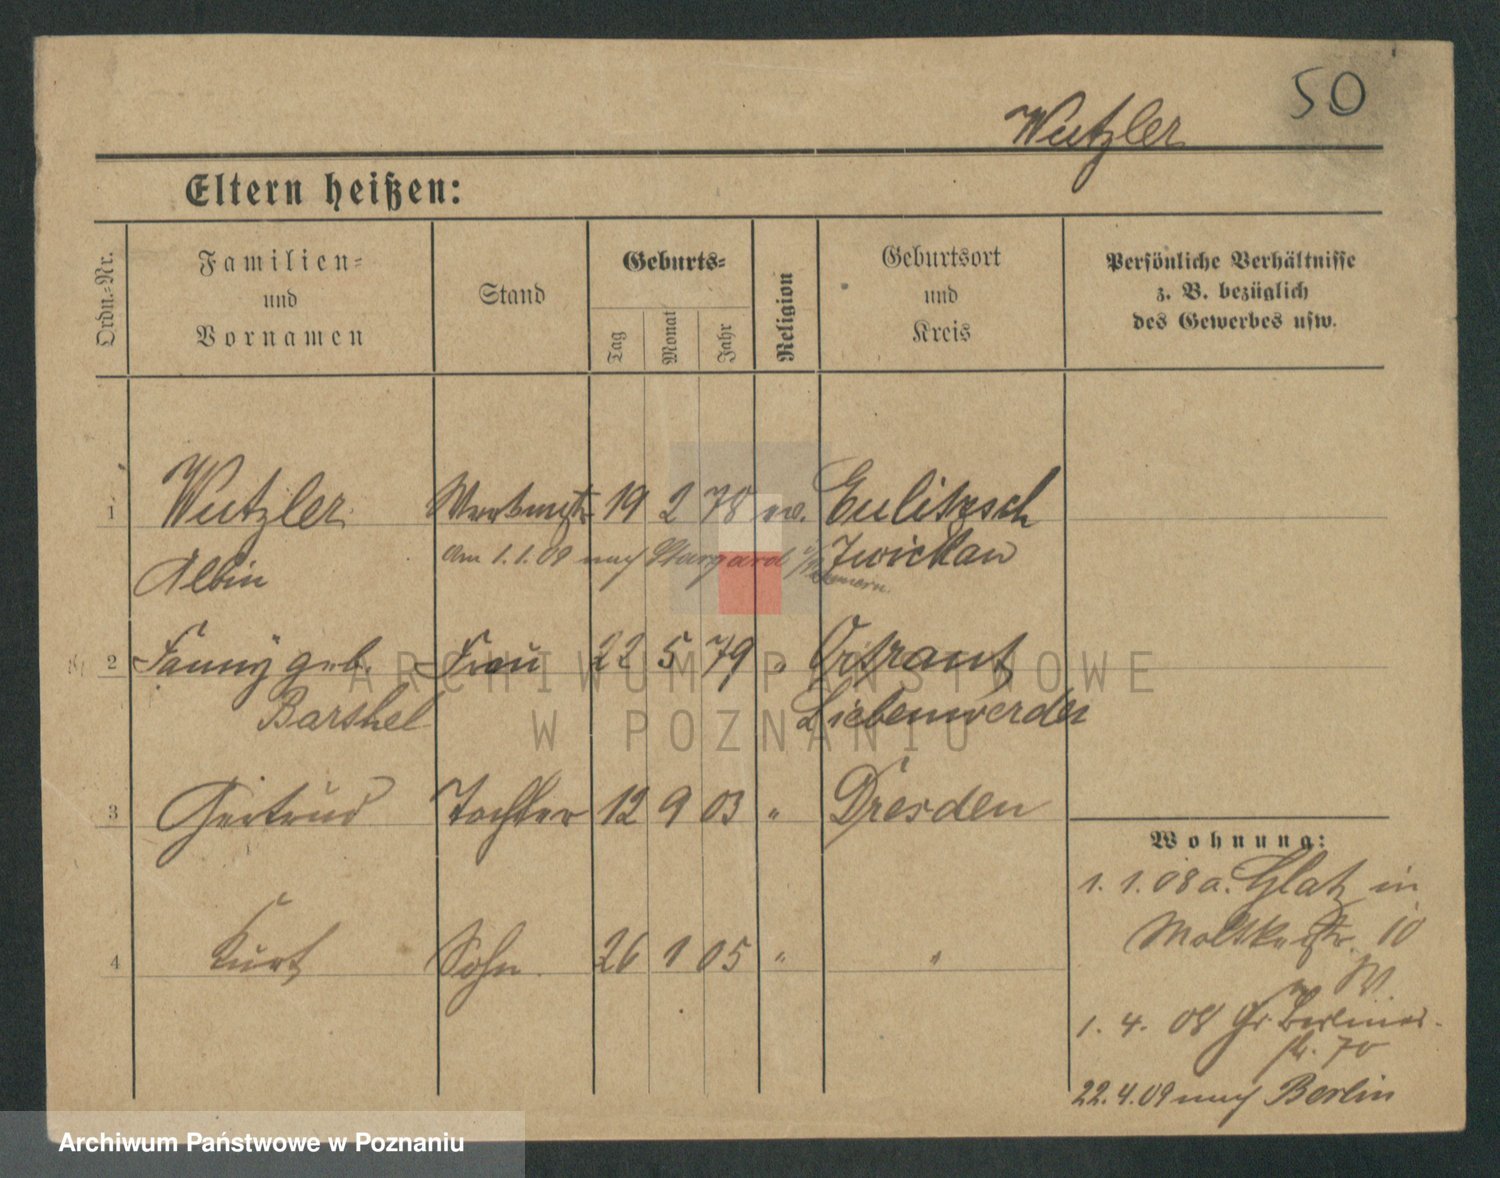 50
Wutzler
Eltern heißen:
Ordn.-Nr.
Familien-
und
Vornamen
Stand
Geburts-
Tag
Monat
Jahr
Religion
Geburtsort
und
Kreis
Persönliche Verhältnisse
z. B. bezüglich
des Gewerbes usw.
1 Wutzler 19 2 78 ev. Eulitzsch
Albin am 1.1.09 nach Stargard i/Pommern. Zwickau
2 Fanny geb. Frau 22 5 79 " Ortrant
Barshel Liebenwerder
3 Gertrud Tochter 12 9 03 " Dresden
4 Kurt Sohn. 26 1 05 " "
Wohnung:
1. 1. 08 a. Glatz in
Moltkestr. 10
1. 4. 08 Gr. Berliner-
str. 70
22.4.09 nach Berlin
ARCHIWUM PAŃSTWOWE
W POZNANIU
Archiwum Państwowe w Poznaniu